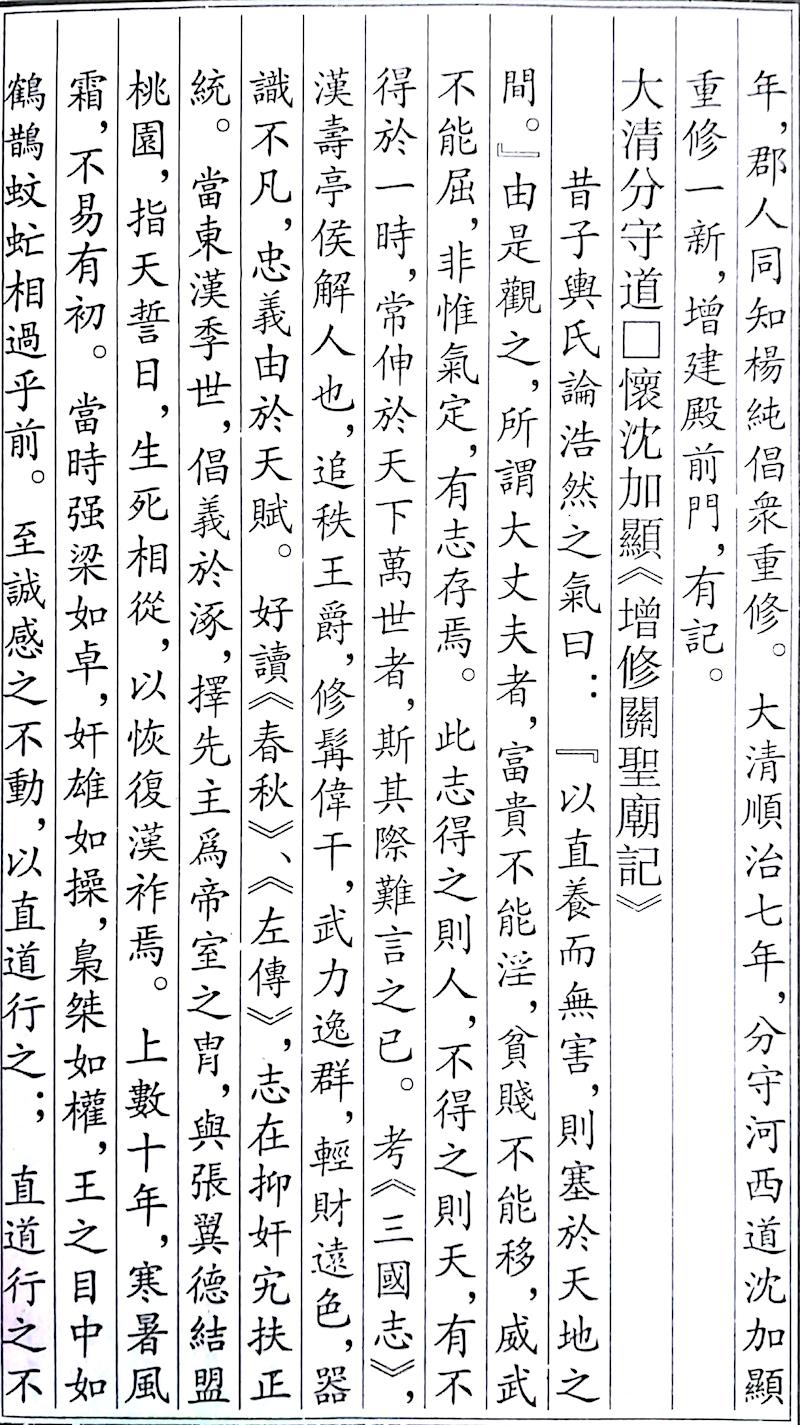 年，郡人同知楊純倡衆重修。大清順治七年，分守河西道沈加顯
重修一新，增建殿前門，有記。
大清分守道□懷沈加顯《增修關聖廟記》
昔子輿氏論浩然之氣曰：『以直養而無害，則塞於天地之
間。』由是觀之，所謂大丈夫者，富貴不能淫，貧賤不能移，威武
不能屈，非惟氣定，有志存焉。此志得之則人，不得之則天，有不
得於一時，常伸於天下萬世者，斯其際難言之已。考《三國志》，
漢壽亭侯解人也，追秩王爵，修髯偉干，武力逸群，輕財遠色，器
識不凡，忠義由於天賦。好讀《春秋》、《左傳》，志在抑奸宄扶正
統。當東漢季世，倡義於涿，擇先主爲帝室之胄，與張翼德結盟
桃園，指天誓日，生死相從，以恢復漢祚焉。上數十年，寒暑風
霜，不易有初。當時强梁如卓，奸雄如操，梟桀如權，王之目中如
鶴鵲蚊虻相過乎前。至誠感之不動，以直道行之；直道行之不